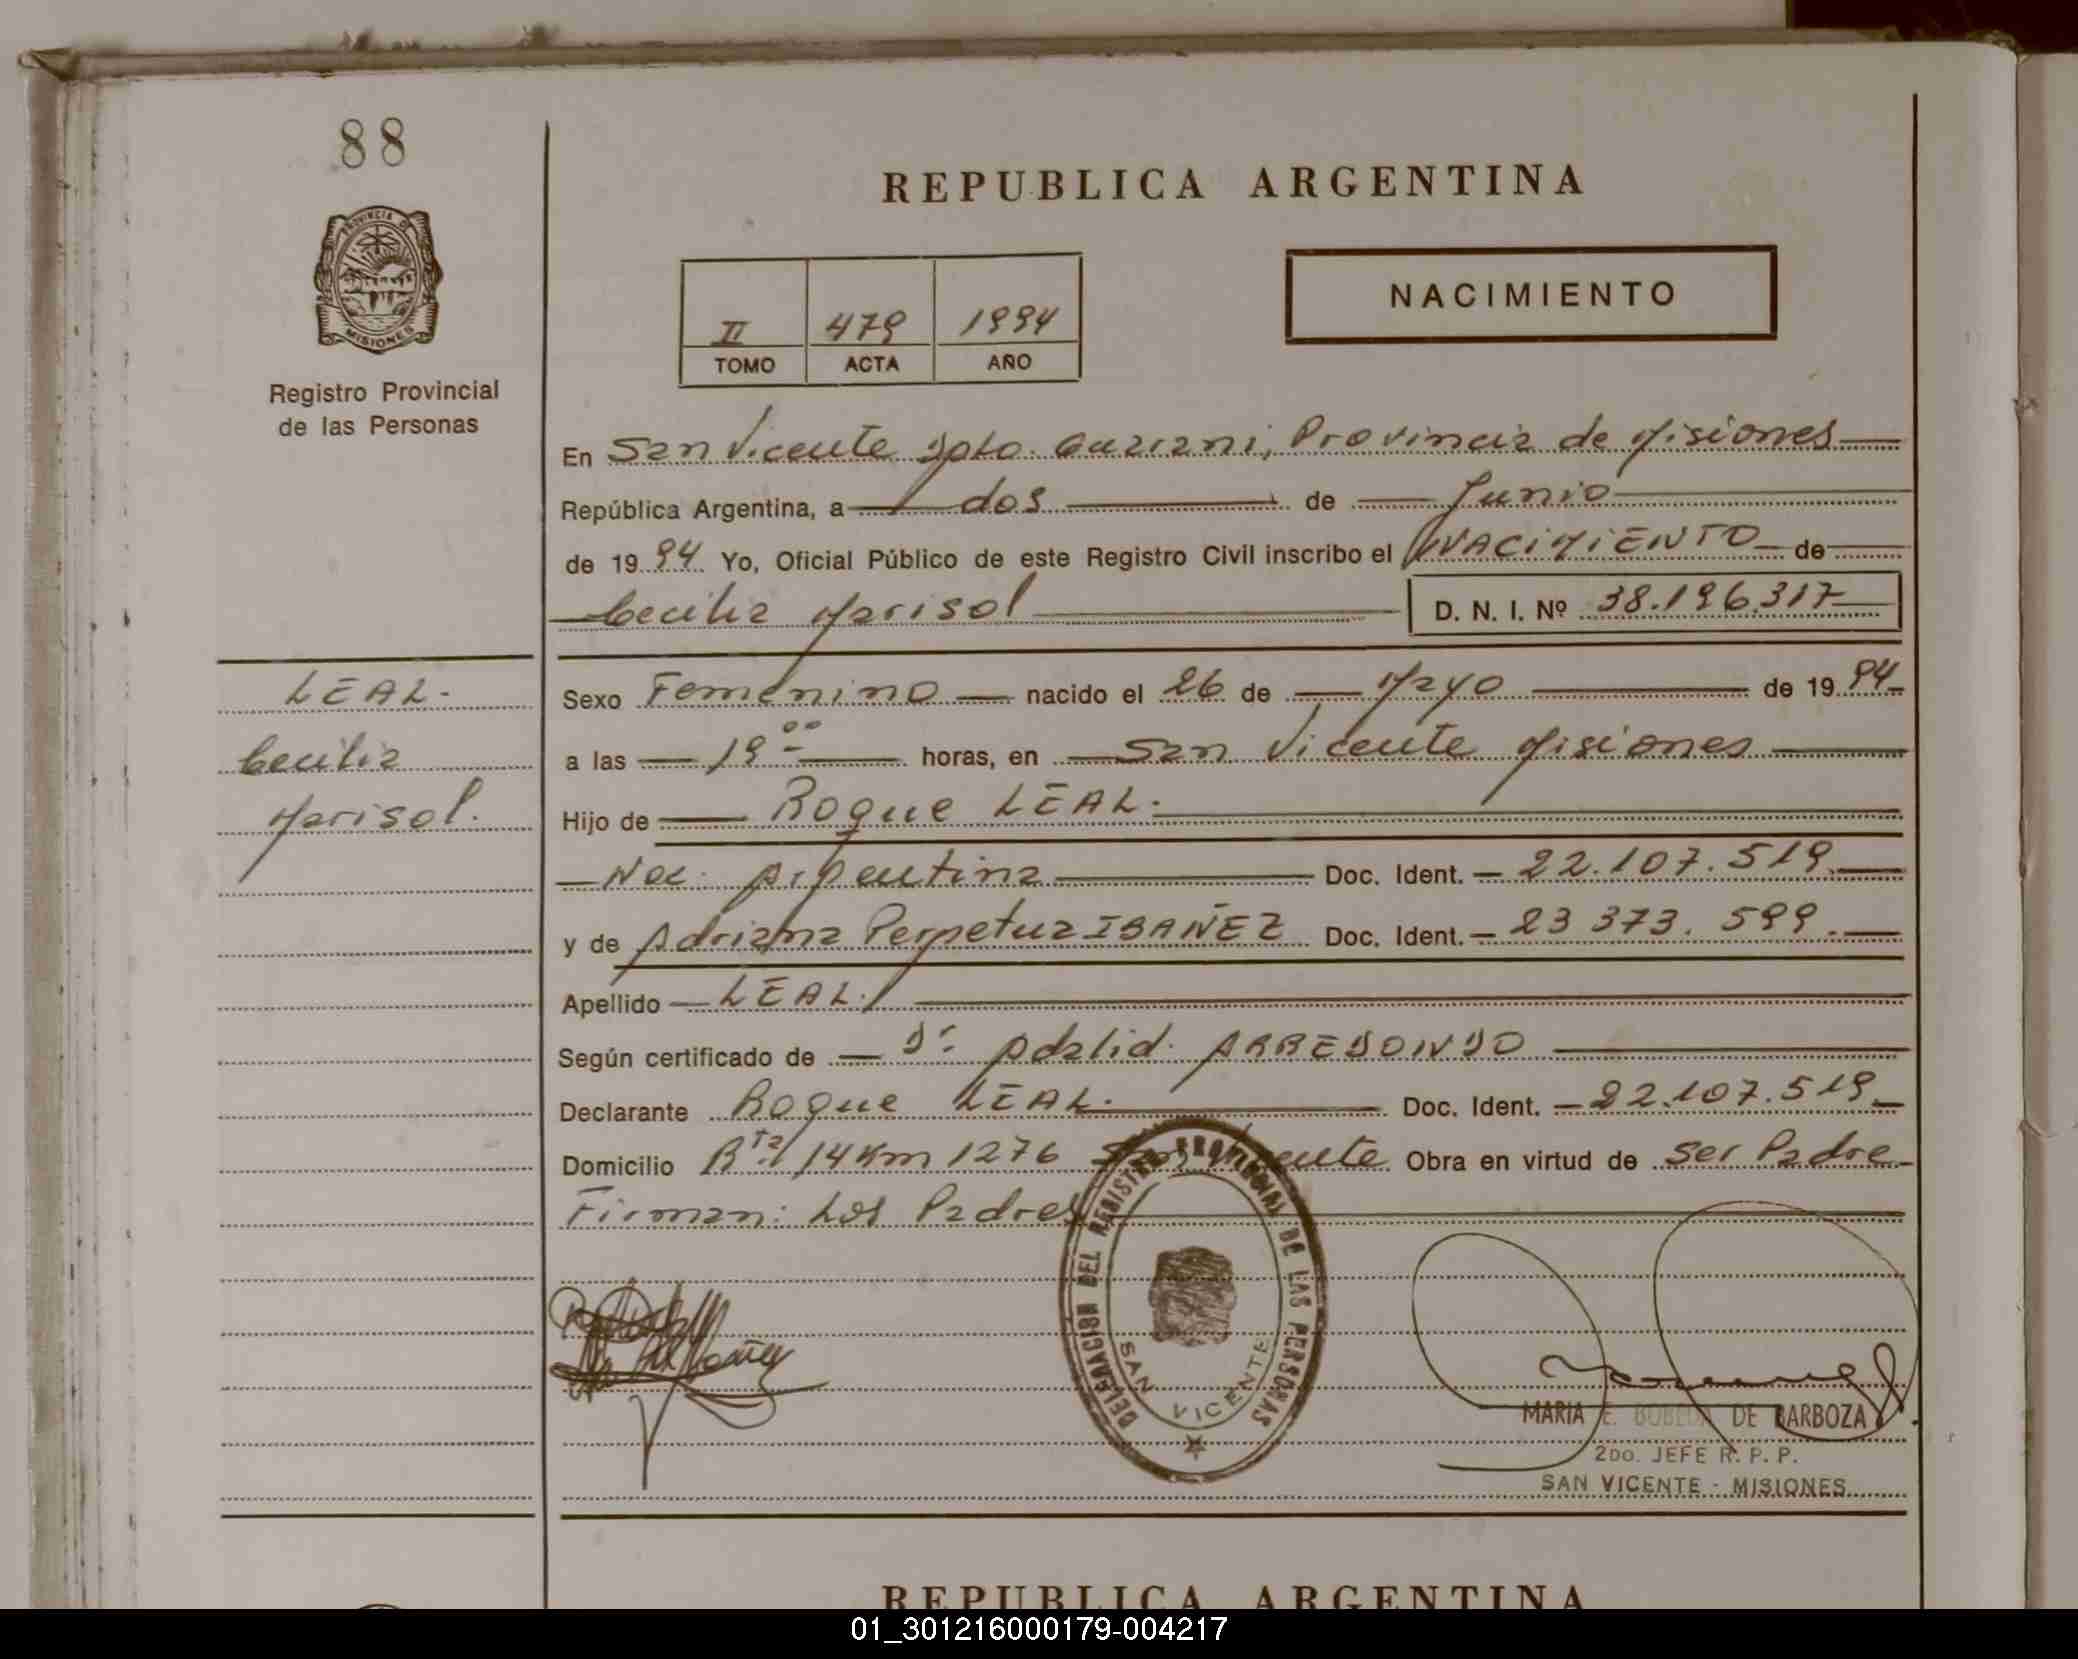 88
PROVINCIA DE
MISIONES
Registro Provincial
de las Personas
REPUBLICA ARGENTINA
II 479 1994
TOMO ACTA AÑO
NACIMIENTO
En San Vicente Dpto. Guarani, Provincia de Misiones
República Argentina, a dos de Junio
de 1994 Yo, Oficial Público de este Registro Civil inscribo el NACIMIENTO de
Cecilia Marisol D. N. I. Nº 38.196.317
LEAL.
Cecilia
Marisol.
Sexo Femenino nacido el 26 de Mayo de 1994
a las 19 00 horas, en San Vicente Misiones
Hijo de Roque LEAL.
Nac. Argentina Doc. Ident. 22.107.519
y de Adriana Perpetua IBAÑEZ Doc. Ident. 23 373. 599.
Apellido LEAL.
Según certificado de Dr. Adalid. ARREDONDO
Declarante Roque LEAL. Doc. Ident. 22.107.519
Domicilio Rta. 14 Km 1276 San Vicente Obra en virtud de ser Padre
Firman: Los Padres
DELEGACION DEL REGISTRO PROVINCIAL DE LAS PERSONAS
SAN VICENTE
MARIA E. BOBEDA DE BARBOZA
2DO. JEFE R. P. P.
SAN VICENTE - MISIONES
REPUBLICA ARGENTINA
01_301216000179-004217